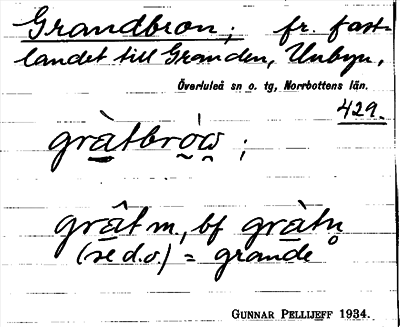 Grandbron; fr. fast-
landet till Granden, Unbyn,
Överluleå sn o. tg, Norrbottens län.
429.
gràtbròw̯ ;
grât m., bf gràtn̥
(se d.o.) = grande
GUNNAR PELLIJEFF 1934.